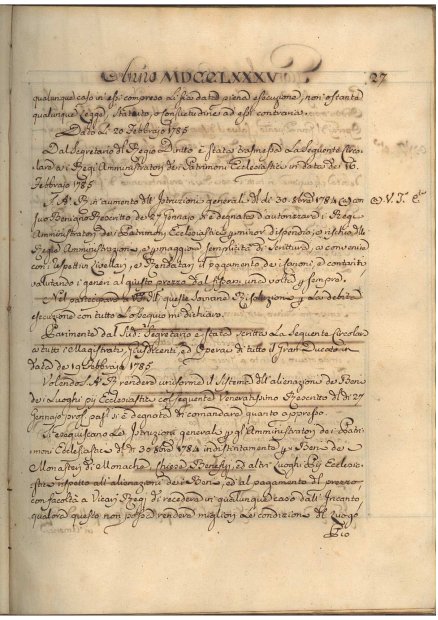 Anno MDCCLXXXV 27
qualunque caso in essi compreso Li sia data piena esecuzione, non ostante
qualunque Legge, Statuto, o Consuetudine ad essi contraria.
Dato Li 20 Febbrajo 1785
Dal Segretario del Regio Diritto è stata trasmessa La Seguente Circo,
lare a i Regi Amministratori dei Patrimoni Ecclesiastici in data del 16.
Febbrajo 1785
S. A. R. in aumento dell' Istruzioni generali de di 30. 8bre 1784 con
suo Benigno Rescritto de 27 Jennajo si è degnata d'autorizzare i Regi
Amministratori dei Patrimoni Ecclesiastici a minor dispendio, o rischio delle
Regie Amministrazioni, e a maggior semplicità di Scrittura, a convenire
con i rispettivi Livellarj, e Rendatarj il pagamento dei Canoni in contanti
valutando i generi al giusto prezzo da fissarsi una volta per sempre.
Nel partecipare questa Sovrana Risoluzione per La debita
esecuzione con tutto L'ossequio mi dichiaro.
Parimente dal Sud: Segretario è stata scritta La Seguente Circolare
a tutti i Magistrati, Giusdicenti, ed Opera di tutto il Gran Ducato in
data de 19 Febbrajo 1785.
Volendo S. A. R. rendere uniforme il sistema dell' alienazione de Beni
dei Luoghi pij Ecclesiastici col seguente Veneratissimo Rescritto del dì 27
Gennajo pros. pas. si è degnata di comandare quanto appresso.
Si eseguiscano Le Istruzioni generali per gl'Amministratori dei Patri,
moni Ecclesiastici del dì 30 8bre 1784 indistintamente per i Beni de
Monasterj di Monache, Chiese, Benefizj, ed altri Luoghi Pij Ecclesia,
stici rispetto all' alienazioni dei Beni, ed al pagamento del prezzo
con facoltà a Vicarj Regj di recedere in qualunque caso dall' Incanto
qualora questo non possa rendere migliori Le condizioni del Luogo
Pio